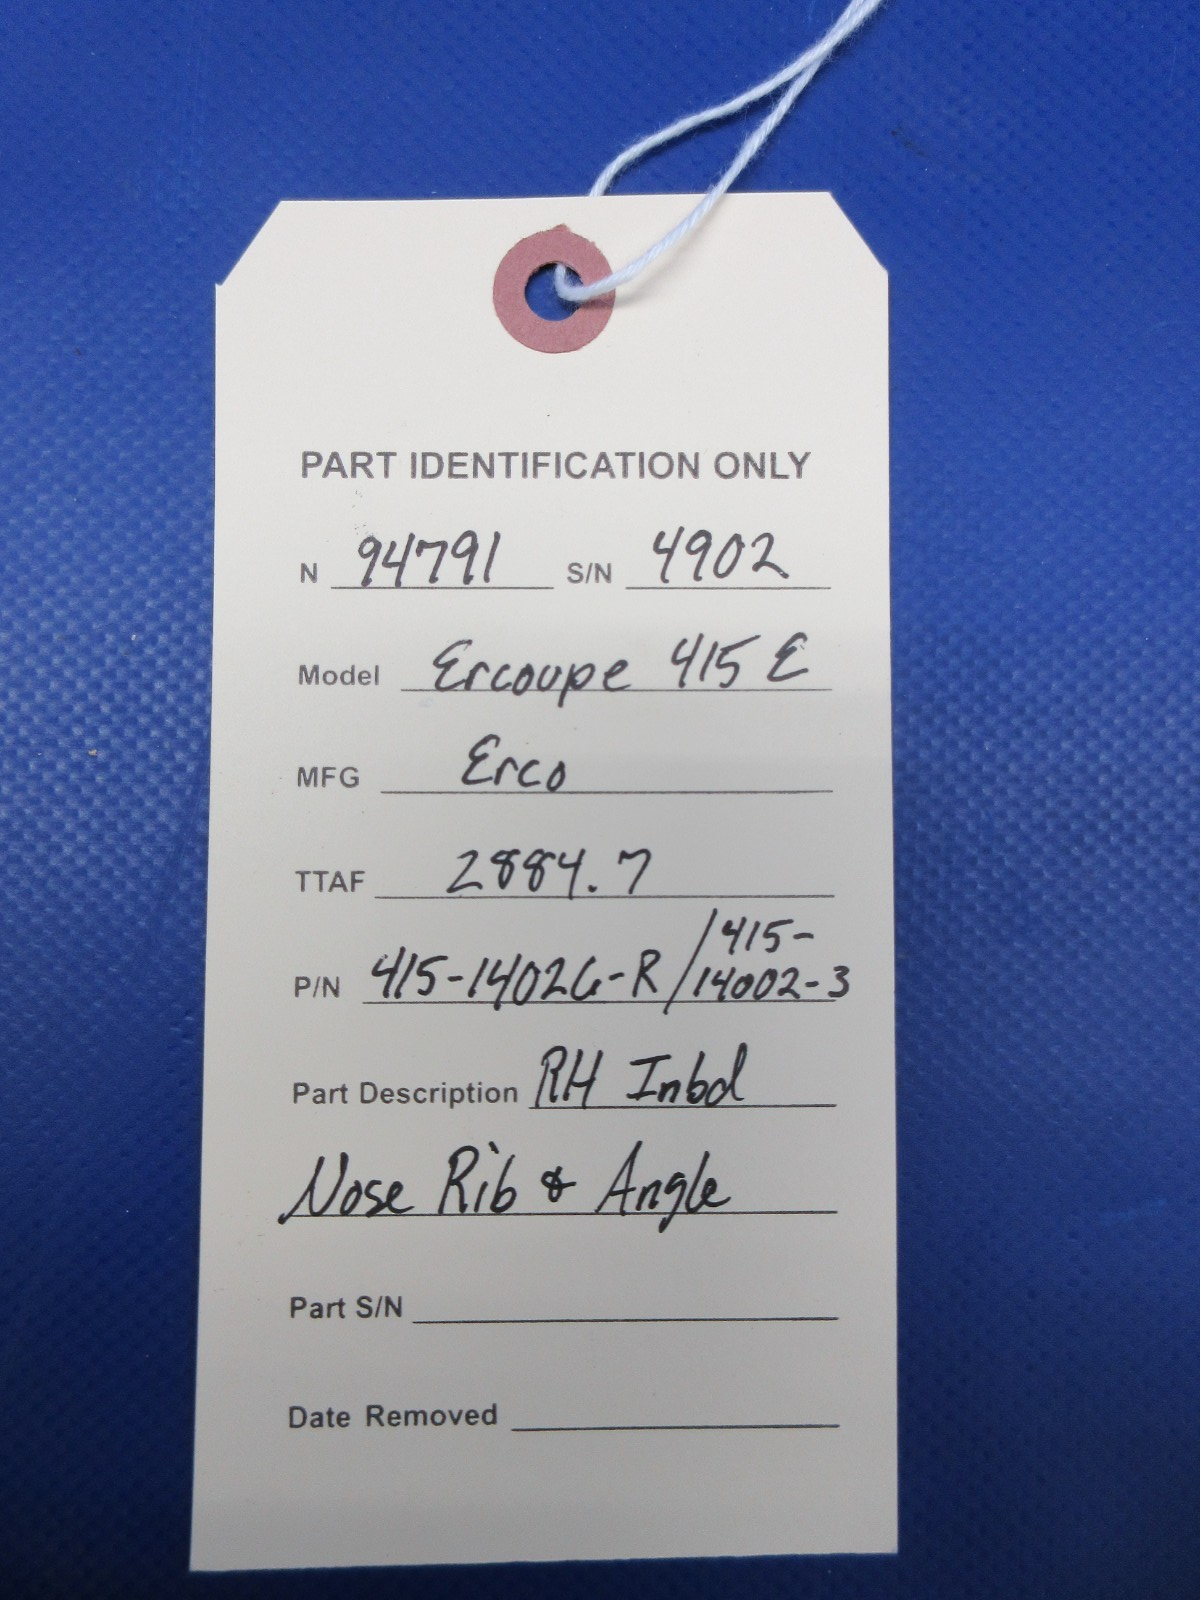 PART IDENTIFICATION ONLY
N 94791 S/N 4902
Model Ercoupe 415 E
MFG Erco
TTAF 2884.7
P/N 415-14026-R / 415-
14002-3
Part Description RH Inbd
Nose Rib & Angle
Part S/N
Date Removed